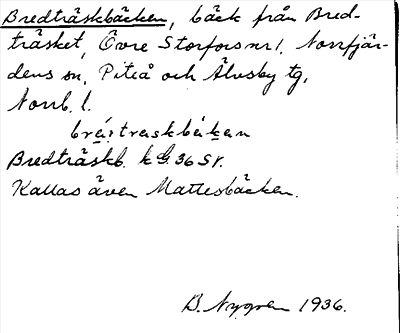 Bredträskbäcken, bäck från Bred-
träsket, Övre Storfors nr 1, Norrfjär-
dens sn, Piteå och Älvsby tg,
Norrb. l.
Bredträskb. k G. 36 SV.
Kallas även Mattesbäcken.
B. Nygren 1936.